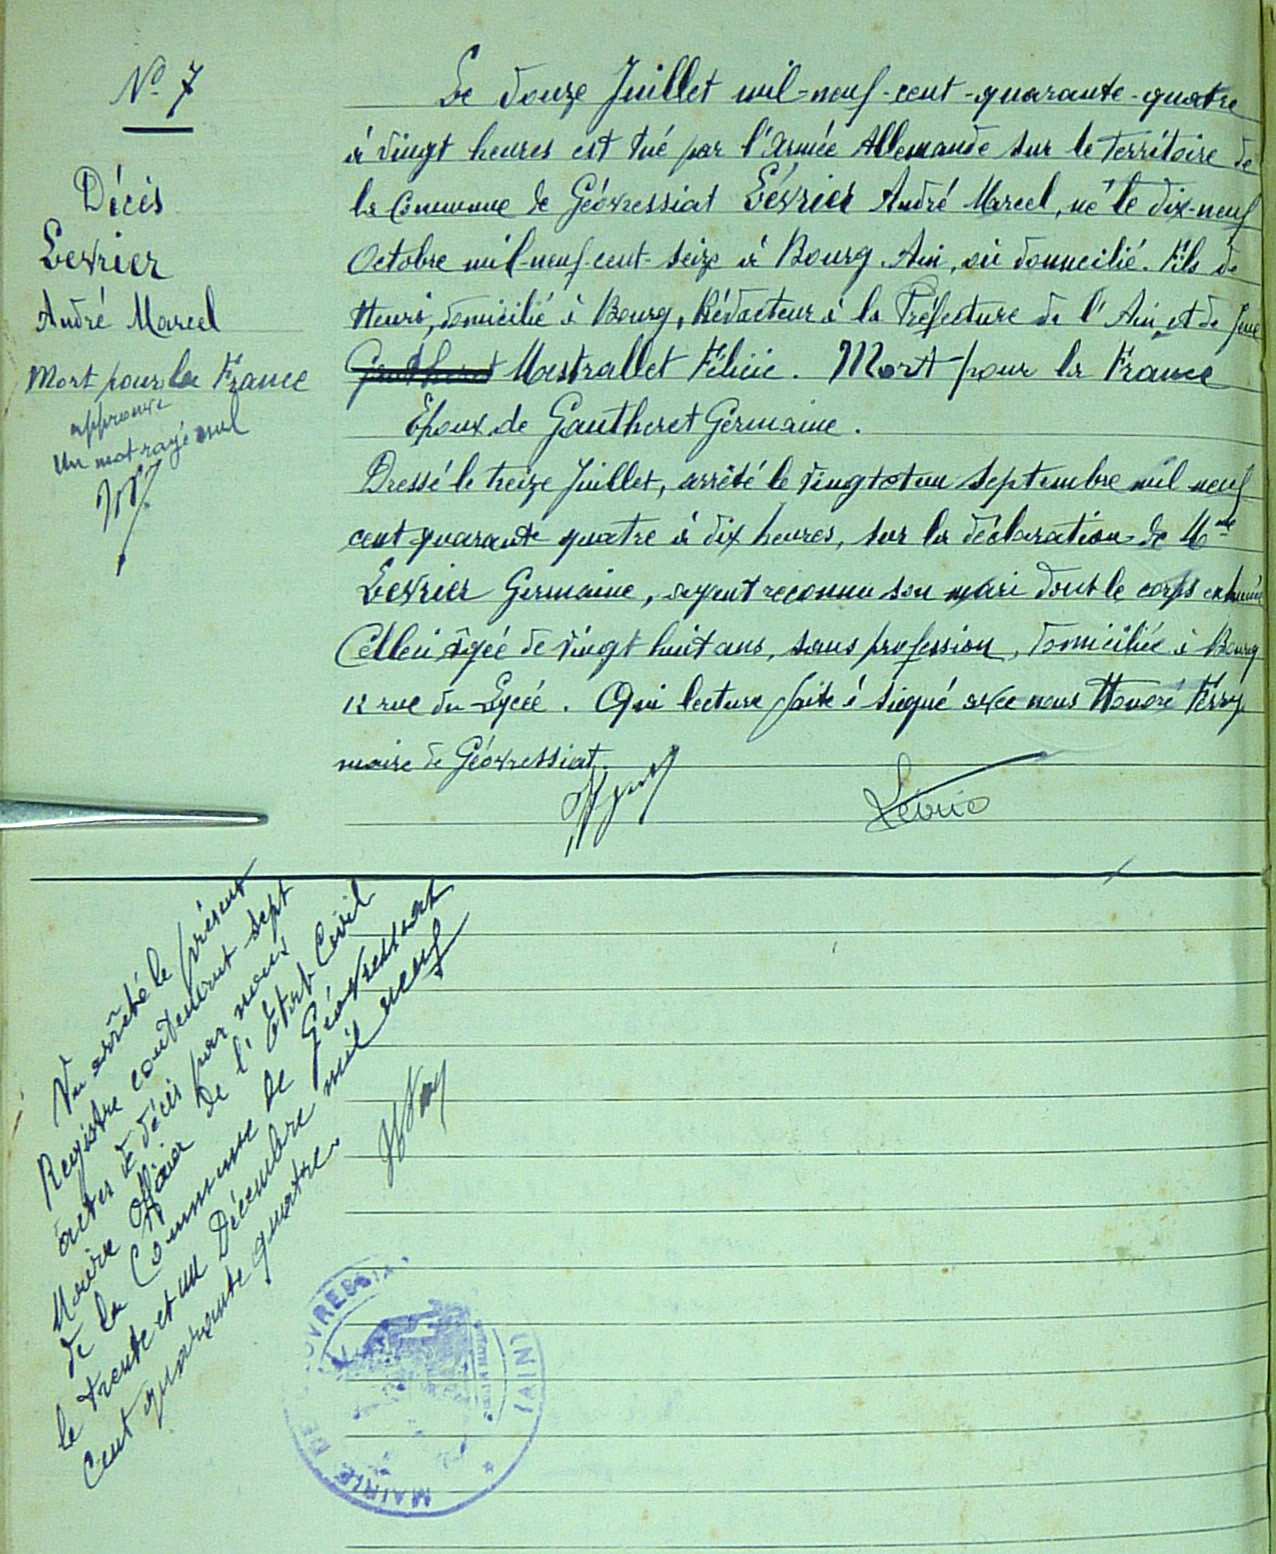 N° 7
Décès
Levrier
André Marcel
Mort pour la France
approuvé
un mot rayé nul
Le douze Juillet mil-neuf-cent-quarante-quatre
à vingt heures est tué par l'Armée Allemande sur le territoire de
la Commune de Géovressiat Lévrier André Marcel, né le dix-neuf
Octobre mil-neuf-cent-seize à Bourg. Ain, où domicilié. Fils de
Henri, domicilié à Bourg, Rédacteur à la Préfecture de l'Ain, et de feue
Gautheret Mastrallet Félicie. Mort pour la France
Epoux de Gautheret Germaine.
Dressé le treize Juillet, arrêté le vingt et un Septembre mil neuf
cent quarante quatre à dix heures, sur la déclaration de Mme
Levrier Germaine, ayant reconnu son mari dont le corps exhumé
Celleci âgée de vingt huit ans, sans profession, domiciliée à Bourg
12 rue du Lycée. Qui lecture faite à signé avec nous Honoré Ferry
maire de Géovressiat.
Lévrie
Vu arrêté le présent
Registre contenant sept
actes de décès par nous
Maire Officier de l'Etat Civil
de la Commune de Géovressiat
le trente et un Décembre mil neuf
Cent quarante quatre.
MAIRIE DE GÉOVRESSIAT
(AIN)